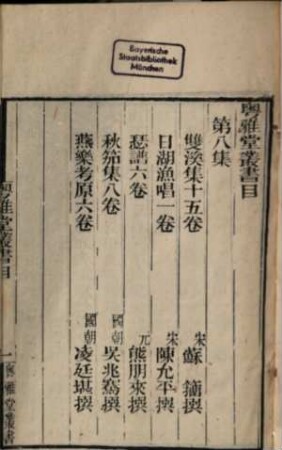 Bayerische
Staatsbibliothek
München
粵雅堂叢書目
第八集
雙溪集十五卷 宋 蘇籀撰
日湖漁唱一卷 宋 陳允平撰
瑟譜六卷 元 熊朋來撰
秋笳集八卷 國朝 吳兆騫撰
燕樂考原六卷 國朝 凌廷堪撰
粵雅堂叢書目
一 粵雅堂叢書